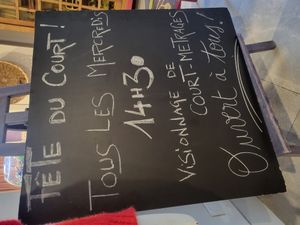 TÊTE DU COURT!
TOUS LES MERCREDIS
14H30
VISIONNAGE DE
COURT-METRAGES
Ouvert à tous!